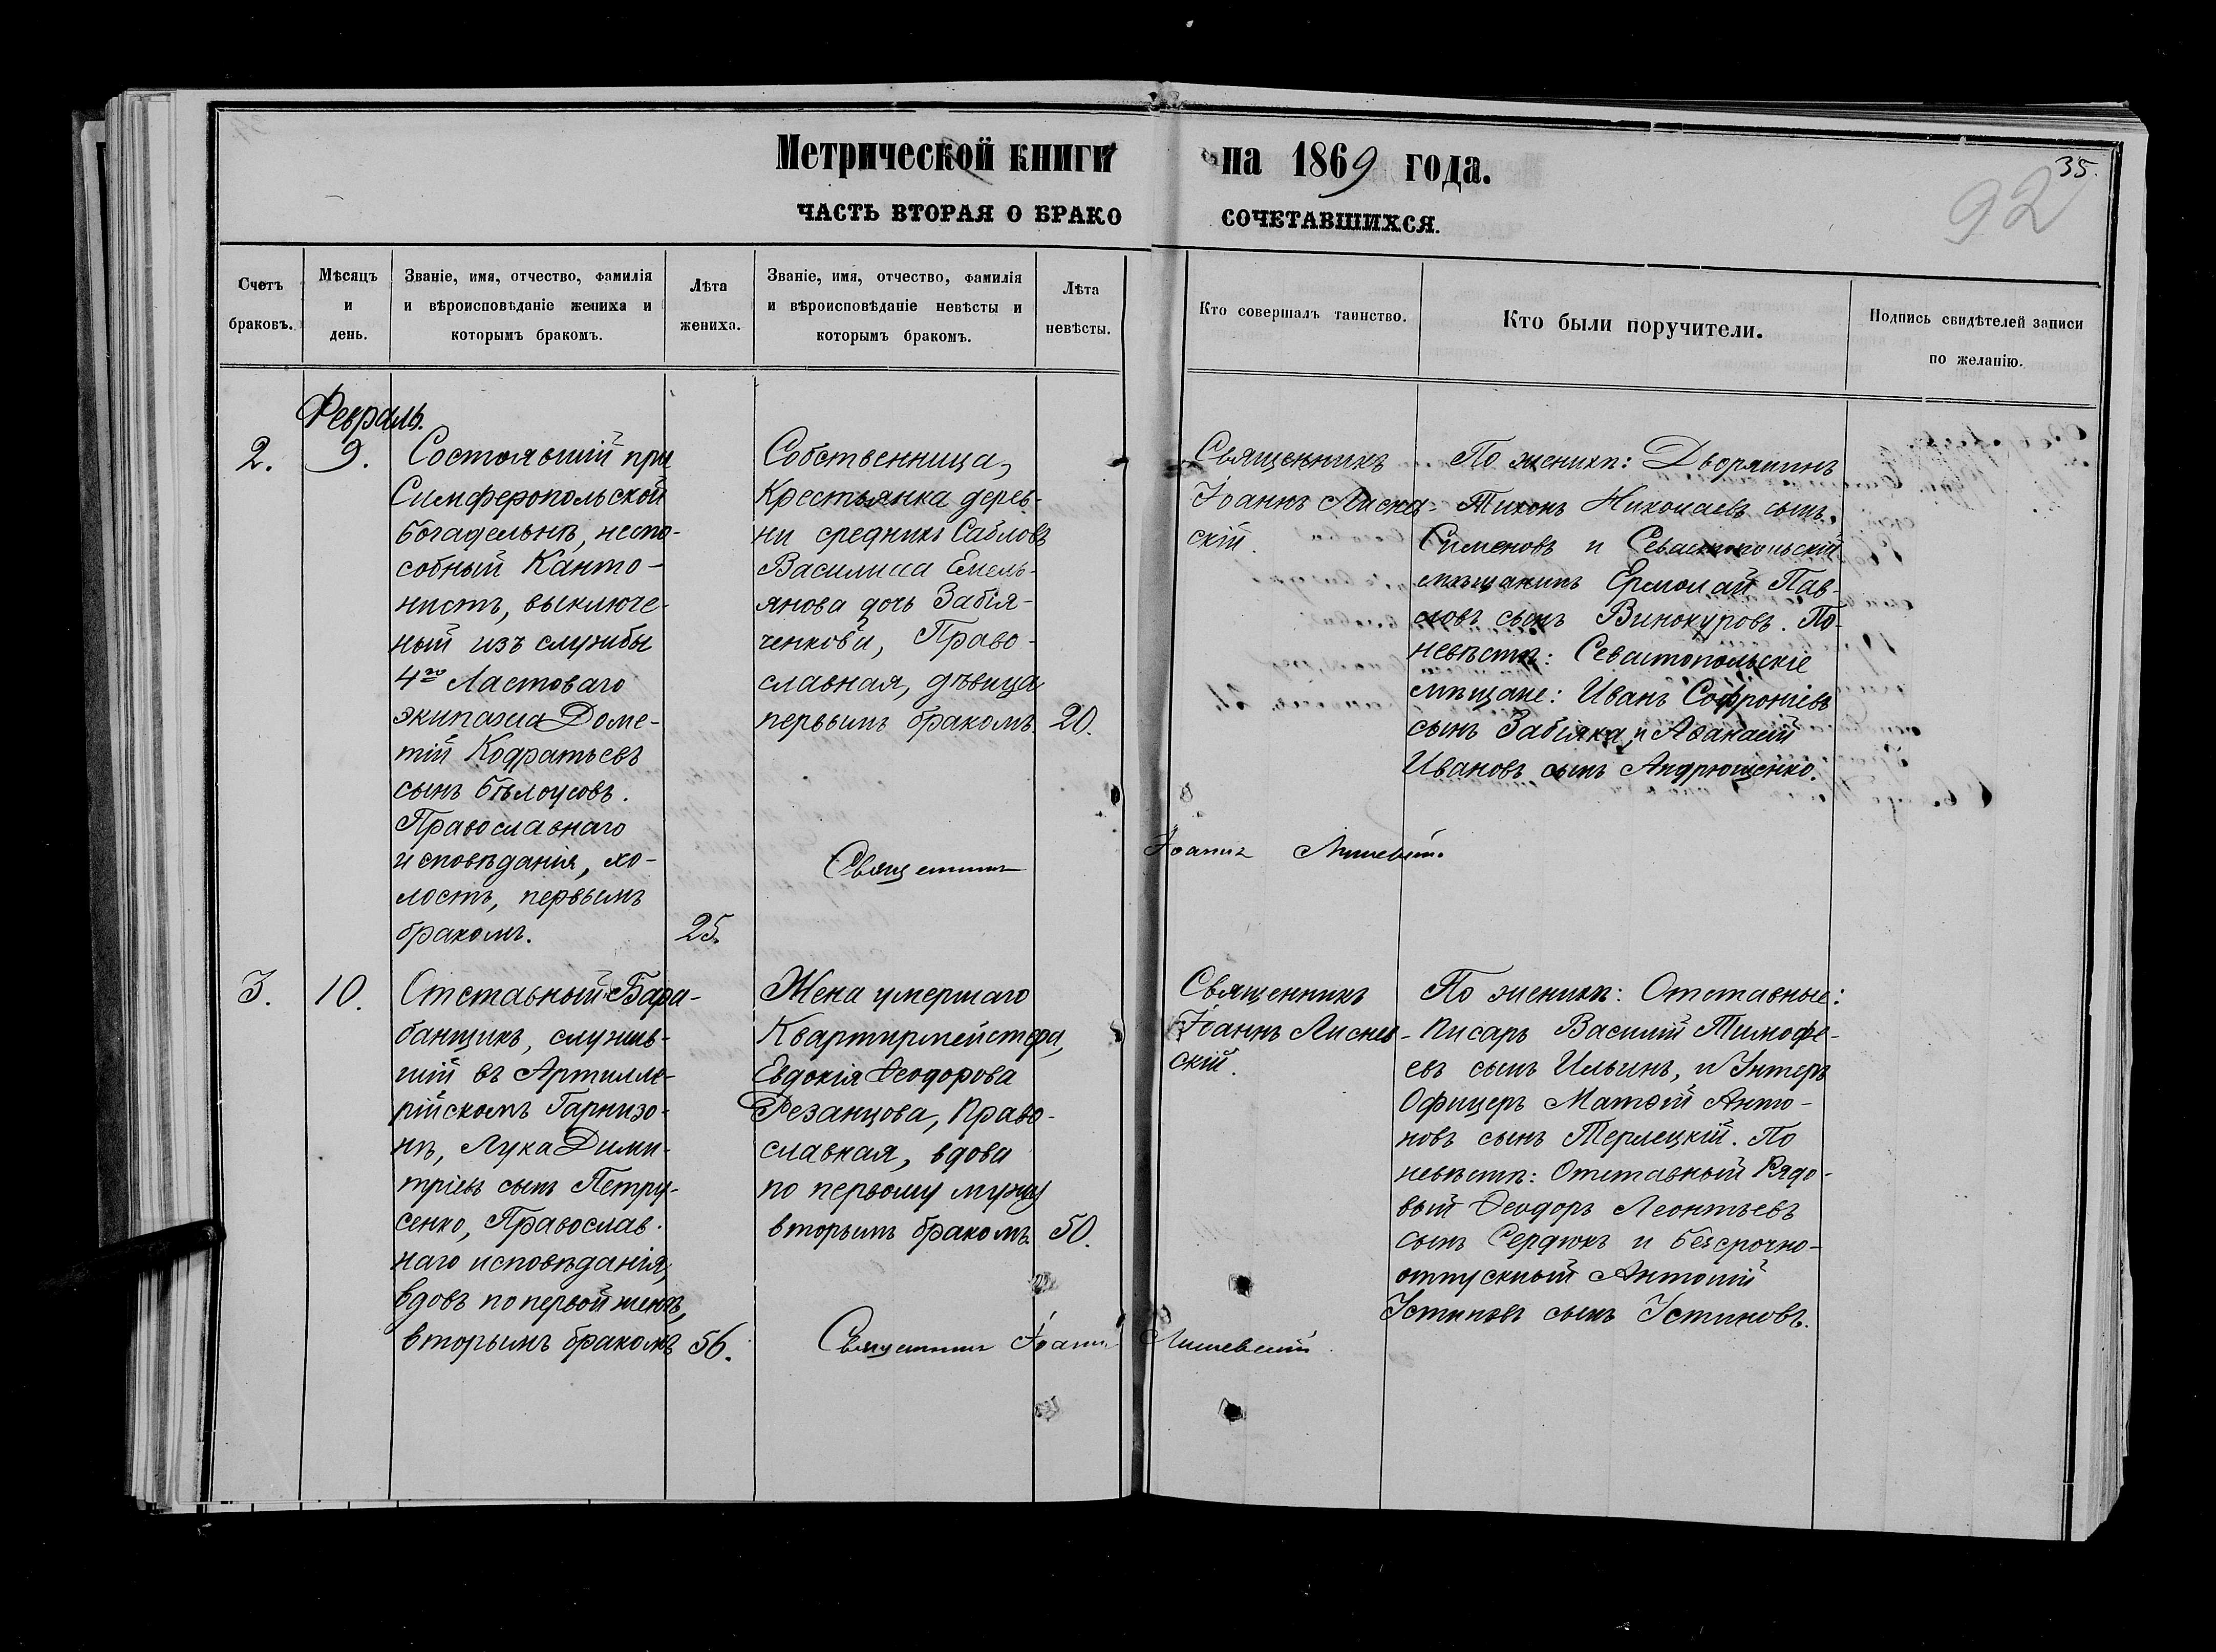 Метрической книги на 1869 года.
35.
92
ЧАСТЬ ВТОРАЯ О БРАКО
СОЧЕТАВШИХСЯ.
Счетъ
браковъ.
Мѣсяцъ
и
день.
Званіе, имя, отчество, фамилія
и вѣроисповѣданіе жениха и
которымъ бракомъ.
Лѣта
жениха.
Званіе, имя, отчество, фамилія
и вѣроисповѣданіе невѣсты и
которымъ бракомъ.
Лѣта
невѣсты.
Кто совершалъ таинство.
Кто были поручители.
Подпись свидѣтелей записи
по желанію.
Февраль.
2.
9.
Состоявшій при
Симферопольской
богадельнѣ, неспо-
собный Канто-
нистъ, выключе-
ный изъ службы
4го Ластоваго
экипажа Доме-
тій Кодратьевъ
сынъ Бѣлоусовъ.
Православнаго
исповѣданія, хо-
лостъ, первымъ
бракомъ.
25.
Собственница,
Крестьянка дерев-
ни среднихъ Сабловъ
Василиса Емель-
янова дочь Забія-
ченкова, Право-
славная, дѣвица
первымъ бракомъ.
20.
Священникъ
Іоаннъ Лиснев-
скій.
По женихѣ: Дворянинъ
Тихонъ Николаевъ сынъ
Сименовъ и Севастопольскій
мѣщанинъ Ермолай Пав-
ловъ сынъ Винокуровъ. По
невѣстѣ: Севастопольскіе
мѣщане: Иванъ Софроніевъ
сынъ Забіяка, и Аѳанасій
Ивановъ сынъ Андрющенко.
Священникъ Іоаннъ Лисневскій.
3.
10.
Отставный Бара-
банщикъ, служив-
шій въ Артилле-
рійскомъ Гарнизо-
нѣ, Лука Дими-
тріевъ сынъ Петру-
сенко, Православ-
наго исповѣданія,
вдовъ по первой женѣ,
вторымъ бракомъ
56.
Жена умершаго
Квартирмейстера,
Евдокія Ѳеодорова
Резанцова, Право-
славная, вдова
по первому мужу
вторымъ бракомъ.
50.
Священникъ
Іоаннъ Лиснев-
скій.
По женихѣ: Отставные:
писарь Василій Тимофе-
евъ сынъ Ильинъ, и Унтеръ
Офицеръ Матѳій Анто-
новъ сынъ Терлецкій. По
невѣстѣ: Отставный Рядо-
вый Ѳеодоръ Леонтьевъ
сынъ Сердюкъ и безсрочно-
отпускный Антоній
Устиновъ сынъ Устиновъ.
Священникъ Іоаннъ Лисневскій